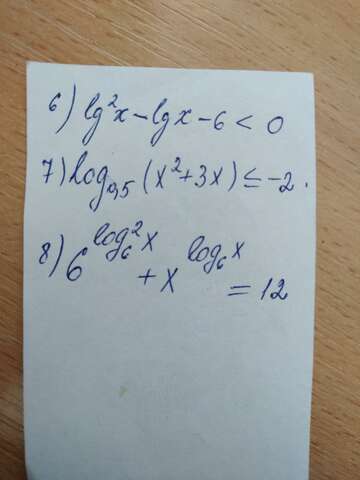 6) lg²x - lgx - 6 < 0
7) log₀,₅ (x² + 3x) ≤ -2.
8) 6^(log₆²x) + x^(log₆x) = 12